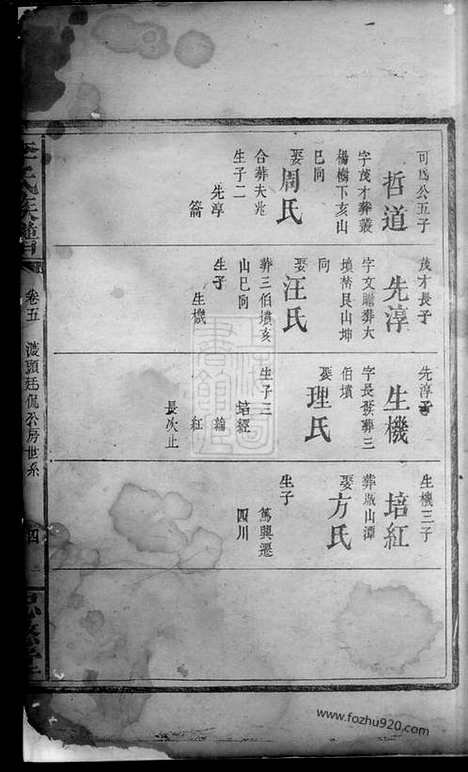 可為公五子
哲道
字茂才葬叢
楊樹下亥山
巳向
娶周氏
合葬夫兆
生子二
先淳
茂才長子
先淳
字文贈葬大
墳棼艮山坤
向
娶汪氏
葬三伯墳亥
山巳向
生子
生機
先淳子
生機
字長發葬三
伯墳
娶理氏
生子三
培經
綸
紅
長次止
生機三子
培紅
葬畈山潭
娶方氏
生子
篤興遷
四川
卷五
公房世系
四
www.fozhu920.com